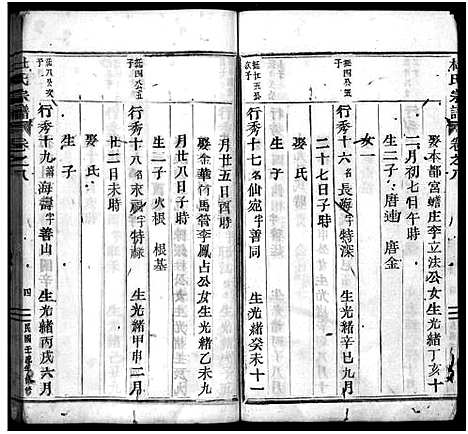 杜氏宗譜 卷之八
娶本都宮蟾庄李立法公女生光緒丁亥十
二月初七日午時
生二子 唐迪 唐金
女一
廷四公五子
行秀十六 名長海字特深 生光緒辛巳九月
二十七日子時
行秀十七 名仙宛字善同 生光緒癸未十一
月廿五日酉時
娶金華府馬管李鳳占公女生光緒乙未九
月廿八日子時
生二子 火根 根基
廷四公五子
行秀十八 名永禄字特緣 生光緒甲申二月
廿二日未時
娶 氏
生 子
廷八公次子
行秀十九 諱海壽字善山 生光緒丙戌六月
杜氏宗譜 卷之八 四